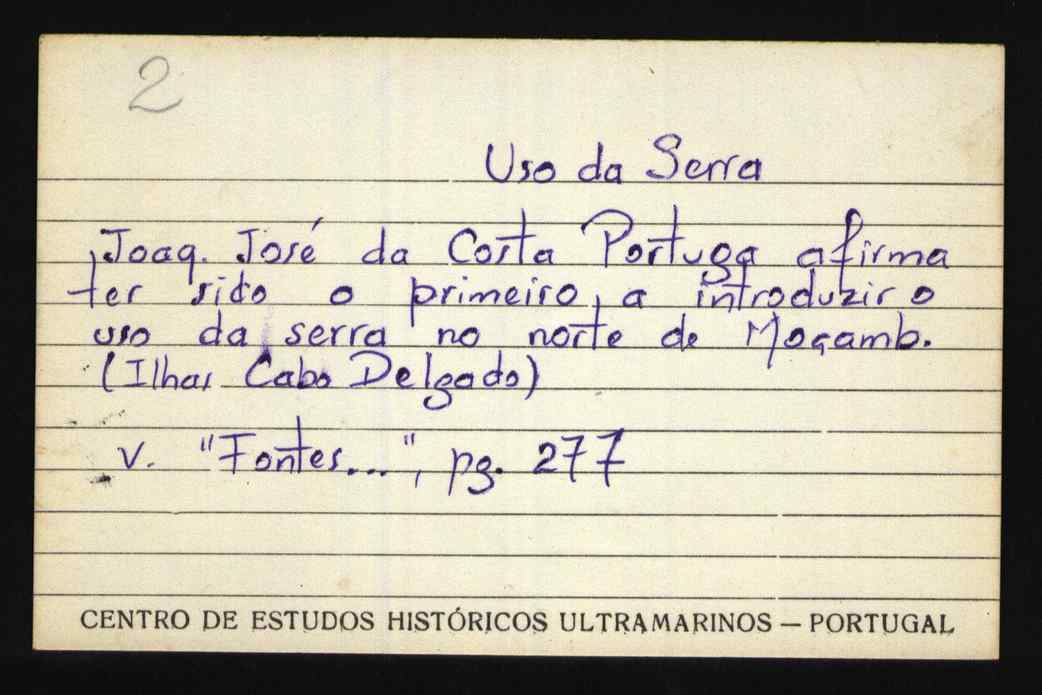 2
Uso da Serra
Joaq. José da Costa Portuga afirma
ter sido o primeiro, a introduzir o
uso da serra no norte de Moçamb.
(Ilhas Cabo Delgado)
v. "Fontes...", pg. 277
CENTRO DE ESTUDOS HISTÓRICOS ULTRAMARINOS — PORTUGAL